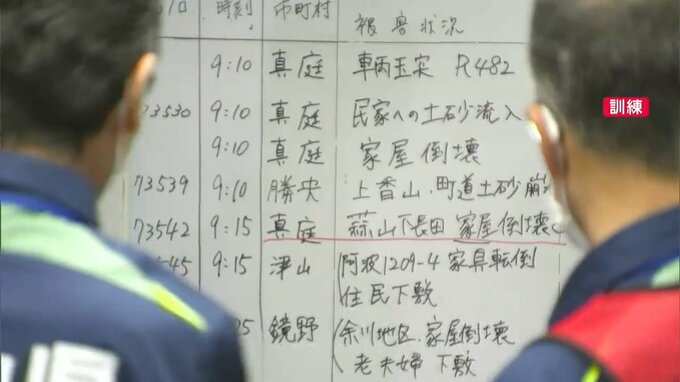 時刻 市町村 被害状況
訓練
9:10 真庭 車両玉突 R482
73530 9:10 真庭 民家への土砂流入
9:10 真庭 家屋倒壊
73539 9:10 勝央 上香山、町道土砂崩
73542 9:15 真庭 蒜山下長田 家屋倒壊
45 9:15 津山 阿波1209-4 家具転倒
住民下敷
鏡野 余川地区、家屋倒壊
老夫婦下敷